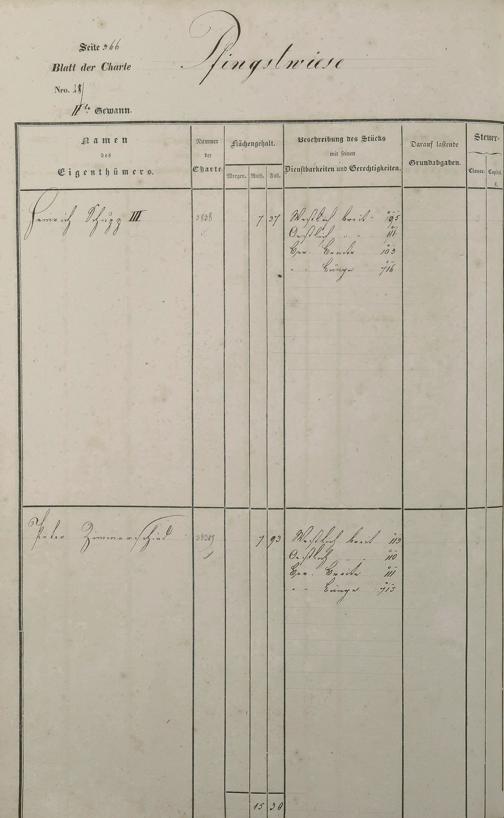 Seite 366
Pfingstwiese
Blatt der Charte
Nro. 18
IIte Gewann.
Namen
des
Eigenthümers.
Nummer
der
Charte
Flächengehalt.
Morgen. Ruth. Fuß.
Beschreibung des Stücks
mit seinen
Dienstbarkeiten und Gerechtigkeiten.
Darauf lastende
Grundabgaben.
Steuer-
Capit.
Heinrich Schupp III
7 37
Westlich breit 105
Oestlich " " 101
Ger. Breite 103
" " Länge 716
Peter Zimmerschied
7 93
Westlich breit 113
Oestlich 110
Ger. Breite 111
" " Länge 713
15 30